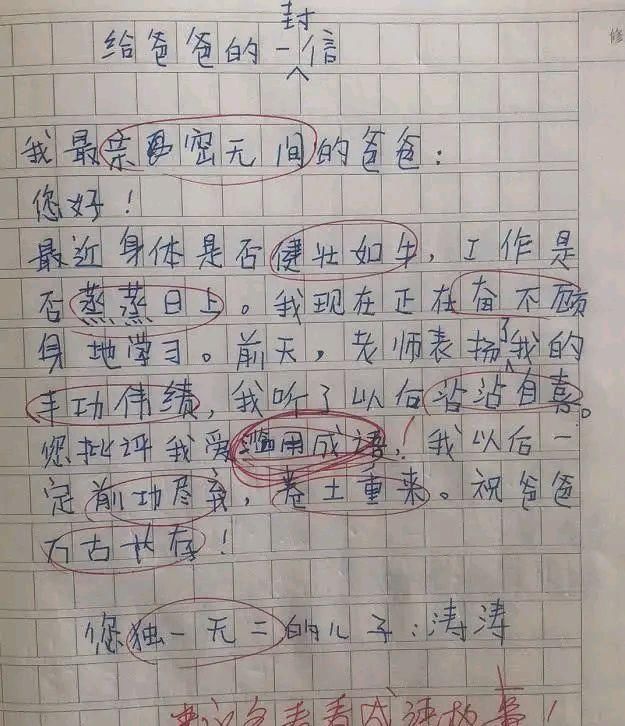 给爸爸的一封信
我最亲密无间的爸爸：
您好！
最近身体是否健壮如牛，工作是
否蒸蒸日上。我现在正在奋不顾
身地学习。前天，老师表扬了我的
丰功伟绩，我听了以后沾沾自喜。
您批评我爱滥用成语，我以后一
定前功尽弃，卷土重来。祝爸爸
万古长存！
您独一无二的儿子：涛涛
建议多去看看成语故事！
修